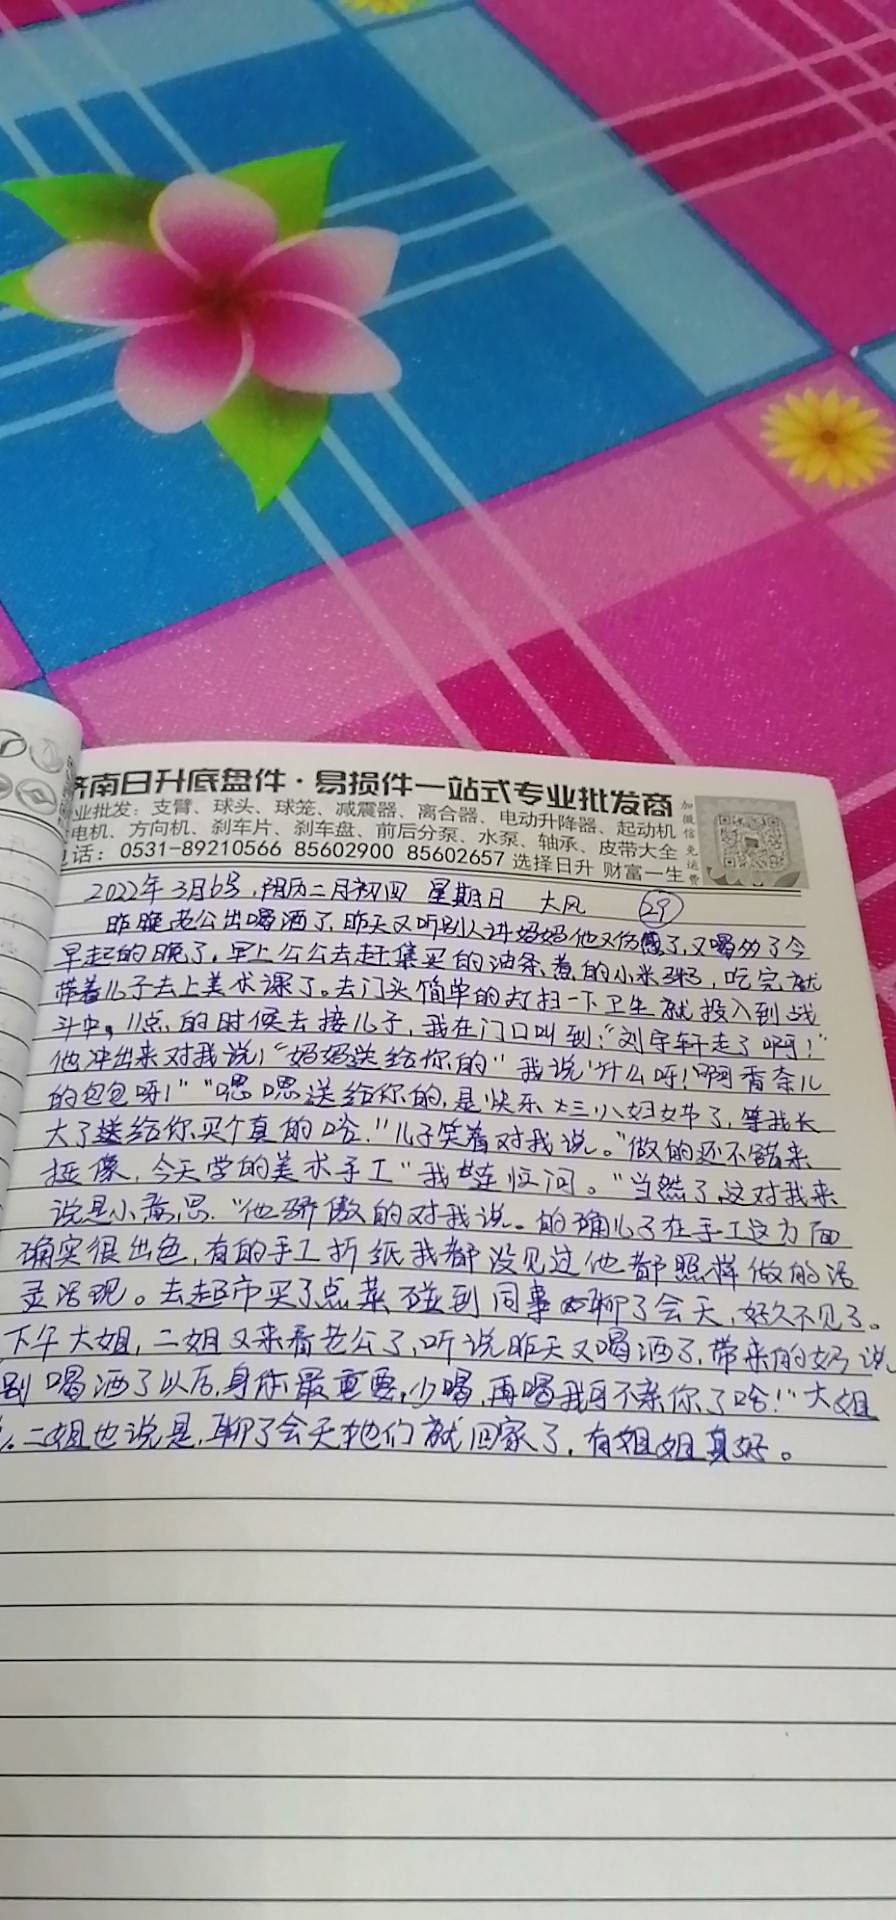 济南日升底盘件·易损件一站式专业批发商
业批发：支臂、球头、球笼、减震器、离合器、电动升降器、起动机
电机、方向机、刹车片、刹车盘、前后分泵、水泵、轴承、皮带大全
话：0531-89210566 85602900 85602657 选择日升 财富一生
加微信免运费
2022年3月6号，阴历二月初四 星期日 大风 29
昨晚老公出喝酒了，昨天又听别人讲妈妈他又伤感了，又喝多了今
早起的晚了。早上公公去赶集买的油条，煮的小米粥，吃完就
带着儿子去上美术课了。去门头简单的打扫一下卫生就投入到战
斗中。11点的时候去接儿子，我在门口叫到："刘宇轩走了啊！"
他冲出来对我说，"妈妈送给你的"我说"什么呀！啊香奈儿
的包包呀！""嗯嗯送给你的，是快乐 三八妇女节了，等我长
大了送给你买个真的哈。"儿子笑着对我说。"做的还不错来
挺像，今天学的美术手工"我 问。"当然了这对我来
说是小意思。"他骄傲的对我说。的确儿子在手工这方面
确实很出色，有的手工折纸我都没见过他都照样做的活
灵活现。去超市买了点菜碰到同事聊了会天，好久不见了。
下午大姐，二姐又来看老公了，听说昨天又喝酒了，带来的奶说
别喝酒了以后，身体最重要，少喝，再喝我可不亲你了哈！"大姐
二姐也说是，聊了会天她们就回家了，有姐姐真好。